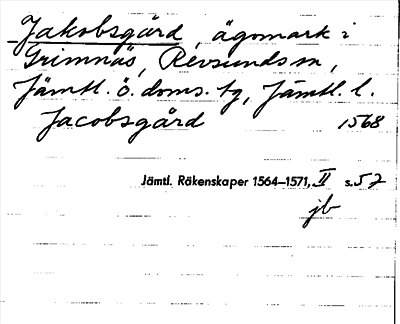 Jakobsgård, ägomark i
Grimnäs, Revsunds sn,
Jämtl. ö. doms. tg, Jämtl. l.
Jacobsgård 1568
Jämtl. Räkenskaper 1564–1571, II s. 57
jb